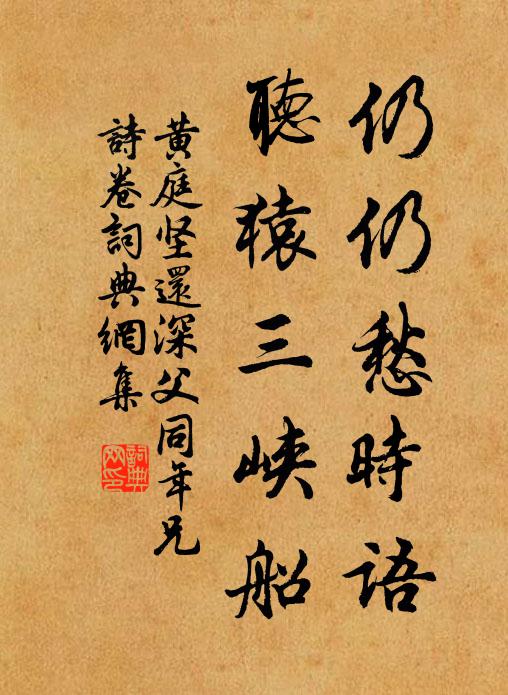 仍仍愁時語
聽猿三峽船
黄庭坚還深父同年兄
詩卷詞典網集
詞典網印